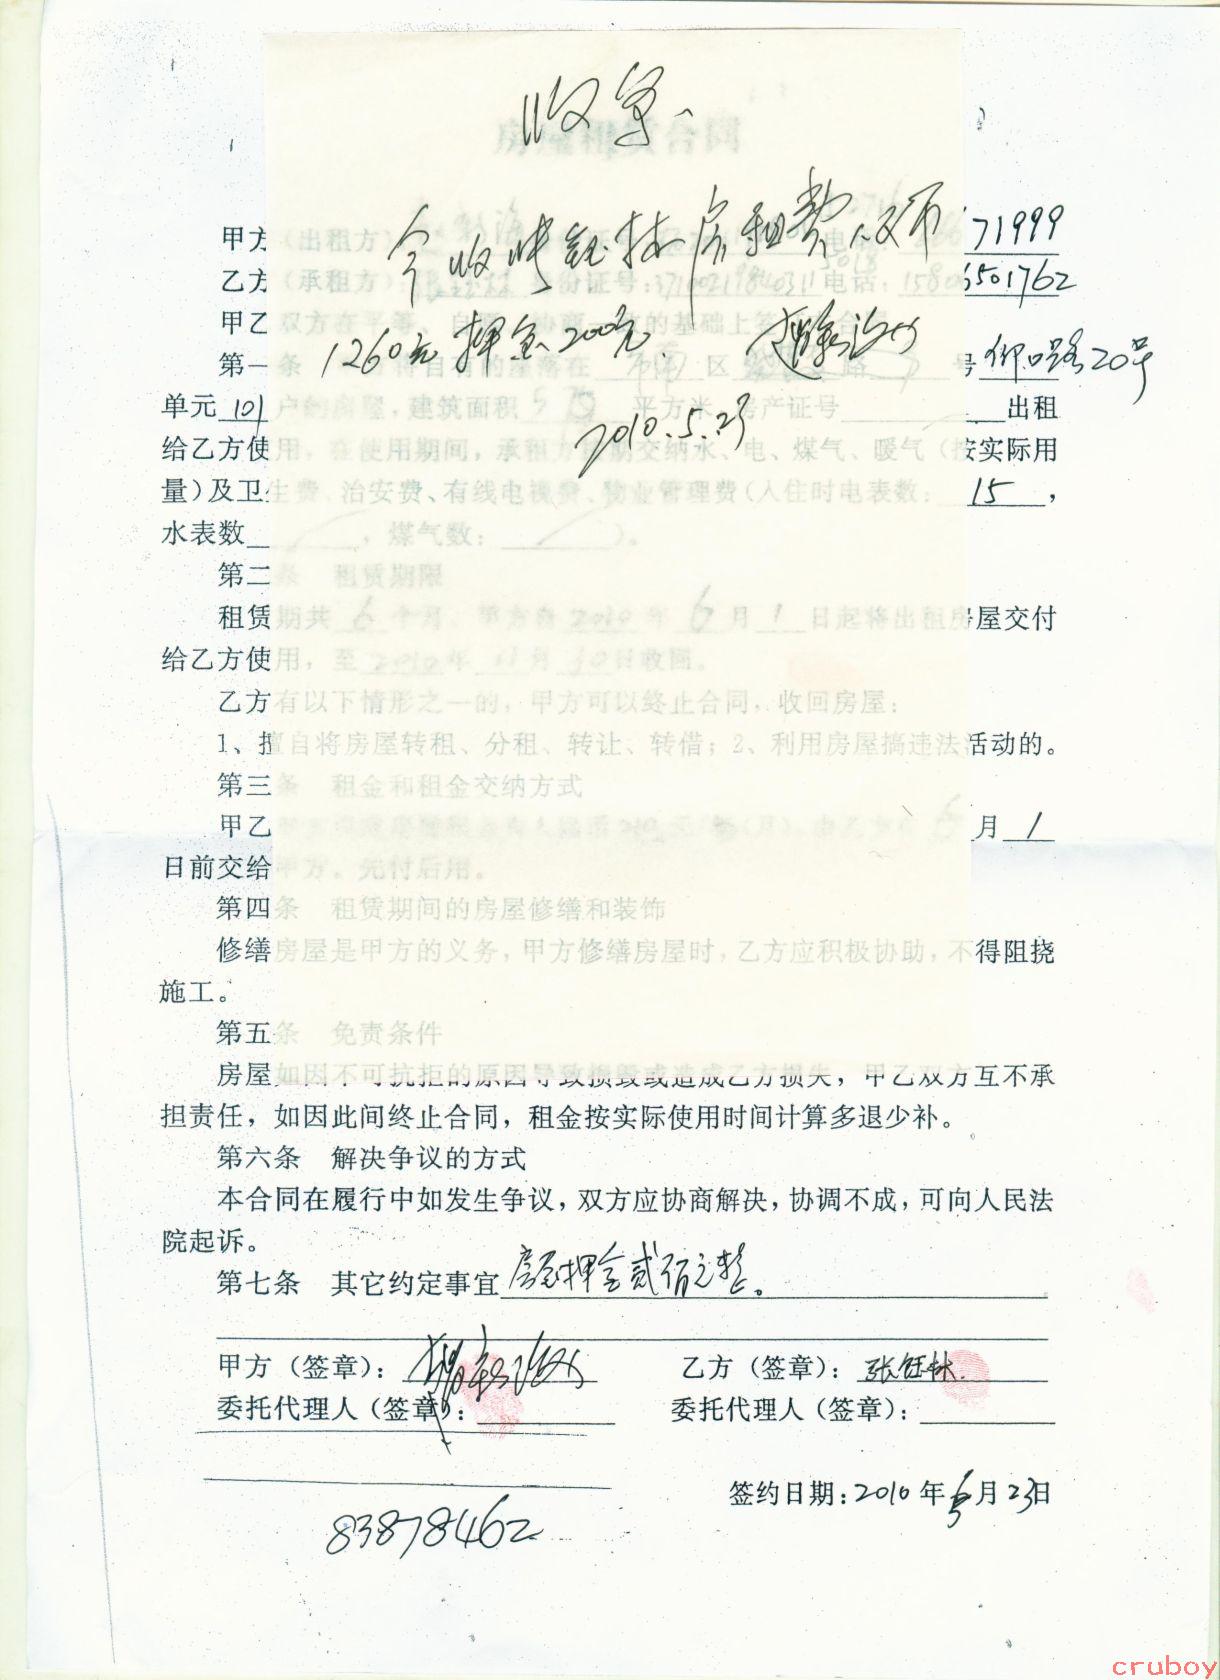 收条
房屋租赁合同
今收张钰林房租费人民币
1260元 押金200元.
2010.5.23
甲方(出租方) 电话: 71999
乙方(承租方): 身份证号: 电话: 6501762
甲乙双方在平等、自愿、协商一致的基础上签订合同
第一条 甲方将自有的座落在 市南 区 路 号 20号
单元 101 户的房屋,建筑面积 平方米,房产证号 出租
给乙方使用,在使用期间,承租方按期交纳水、电、煤气、暖气(按实际用
量)及卫生费、治安费、有线电视费、物业管理费(入住时电表数: 15 ,
水表数 ,煤气数: )。
第二条 租赁期限
租赁期共 6 个月,甲方自 2010 年 6 月 1 日起将出租房屋交付
给乙方使用,至 2010 年 11 月 30 日收回。
乙方有以下情形之一的,甲方可以终止合同,收回房屋:
1、擅自将房屋转租、分租、转让、转借;2、利用房屋搞违法活动的。
第三条 租金和租金交纳方式
甲乙 210 (月),由乙方在 6 月 1
日前交给甲方。先付后用。
第四条 租赁期间的房屋修缮和装饰
修缮房屋是甲方的义务,甲方修缮房屋时,乙方应积极协助,不得阻挠
施工。
第五条 免责条件
房屋如因不可抗拒的原因导致损毁或造成乙方损失,甲乙双方互不承
担责任,如因此间终止合同,租金按实际使用时间计算多退少补。
第六条 解决争议的方式
本合同在履行中如发生争议,双方应协商解决,协调不成,可向人民法
院起诉。
第七条 其它约定事宜 房屋押金贰佰元整。
甲方(签章): 乙方(签章): 张钰林.
委托代理人(签章): 委托代理人(签章):
签约日期:2010 年 5 月 23 日
83878462
cruboy